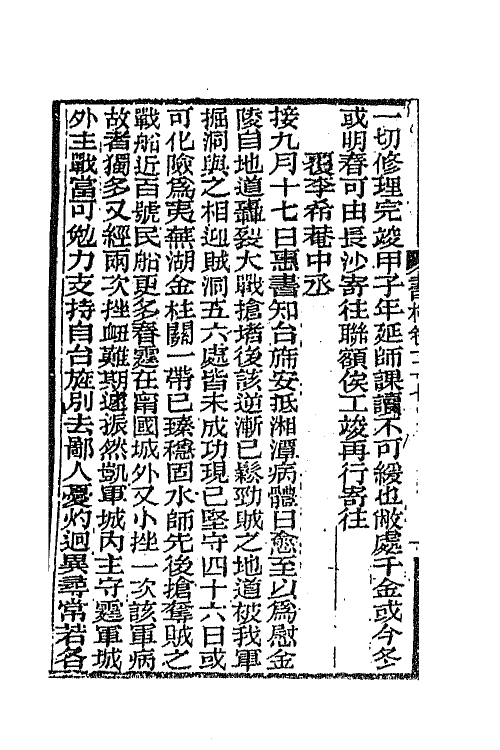 一切修理完竣甲子年延師課讀不可緩也敝處千金或今冬
或明春可由長沙寄往聯額俟工竣再行寄往
覆李希菴中丞
接九月十七日惠書知台旆安抵湘潭病體日愈至以為慰金
陵自地道轟裂大戰搶堵後該逆漸已鬆勁賊之地道被我軍
掘洞與之相迎賊洞五六處皆未成功現已堅守四十六日或
可化險為夷蕪湖金柱關一帶已臻穩固水師先後搶奪賊之
戰船近百號民船更多春霆在甯國城外又小挫一次該軍病
故者獨多又經兩次挫衄難期遽振然凱軍城內主守霆軍城
外主戰當可勉力支持自台旌別去鄙人憂灼迴異尋常若各